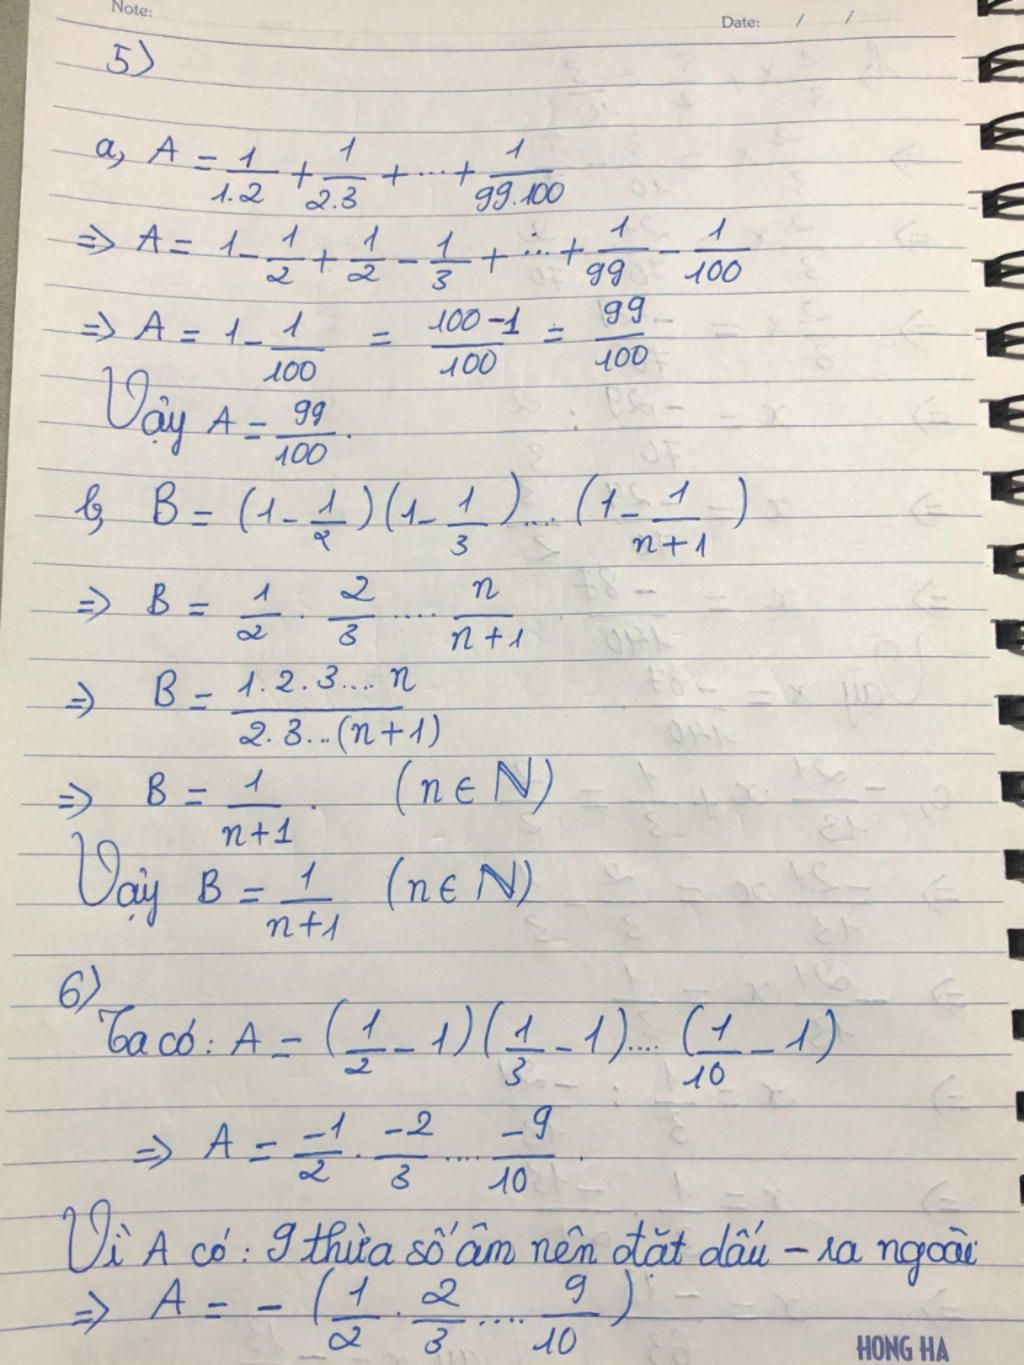 Note:
Date: / /
5)
a, A = 1/1.2 + 1/2.3 + ... + 1/99.100
=> A = 1 - 1/2 + 1/2 - 1/3 + ... + 1/99 - 1/100
=> A = 1 - 1/100 = 100-1/100 = 99/100
Vậy A = 99/100.
b, B = (1 - 1/2)(1 - 1/3)... (1 - 1/n+1)
=> B = 1/2 . 2/3 .... n/n+1
=> B = 1.2.3....n/2.3...(n+1)
=> B = 1/n+1. (n ∈ ℕ)
Vậy B = 1/n+1 (n ∈ ℕ)
6)
Ta có: A = (1/2 - 1)(1/3 - 1).... (1/10 - 1)
=> A = -1/2 . -2/3 .... -9/10.
Vì A có: 9 thừa số âm nên đặt dấu - ra ngoài
=> A = - (1/2 . 2/3 .... 9/10)
HONG HA